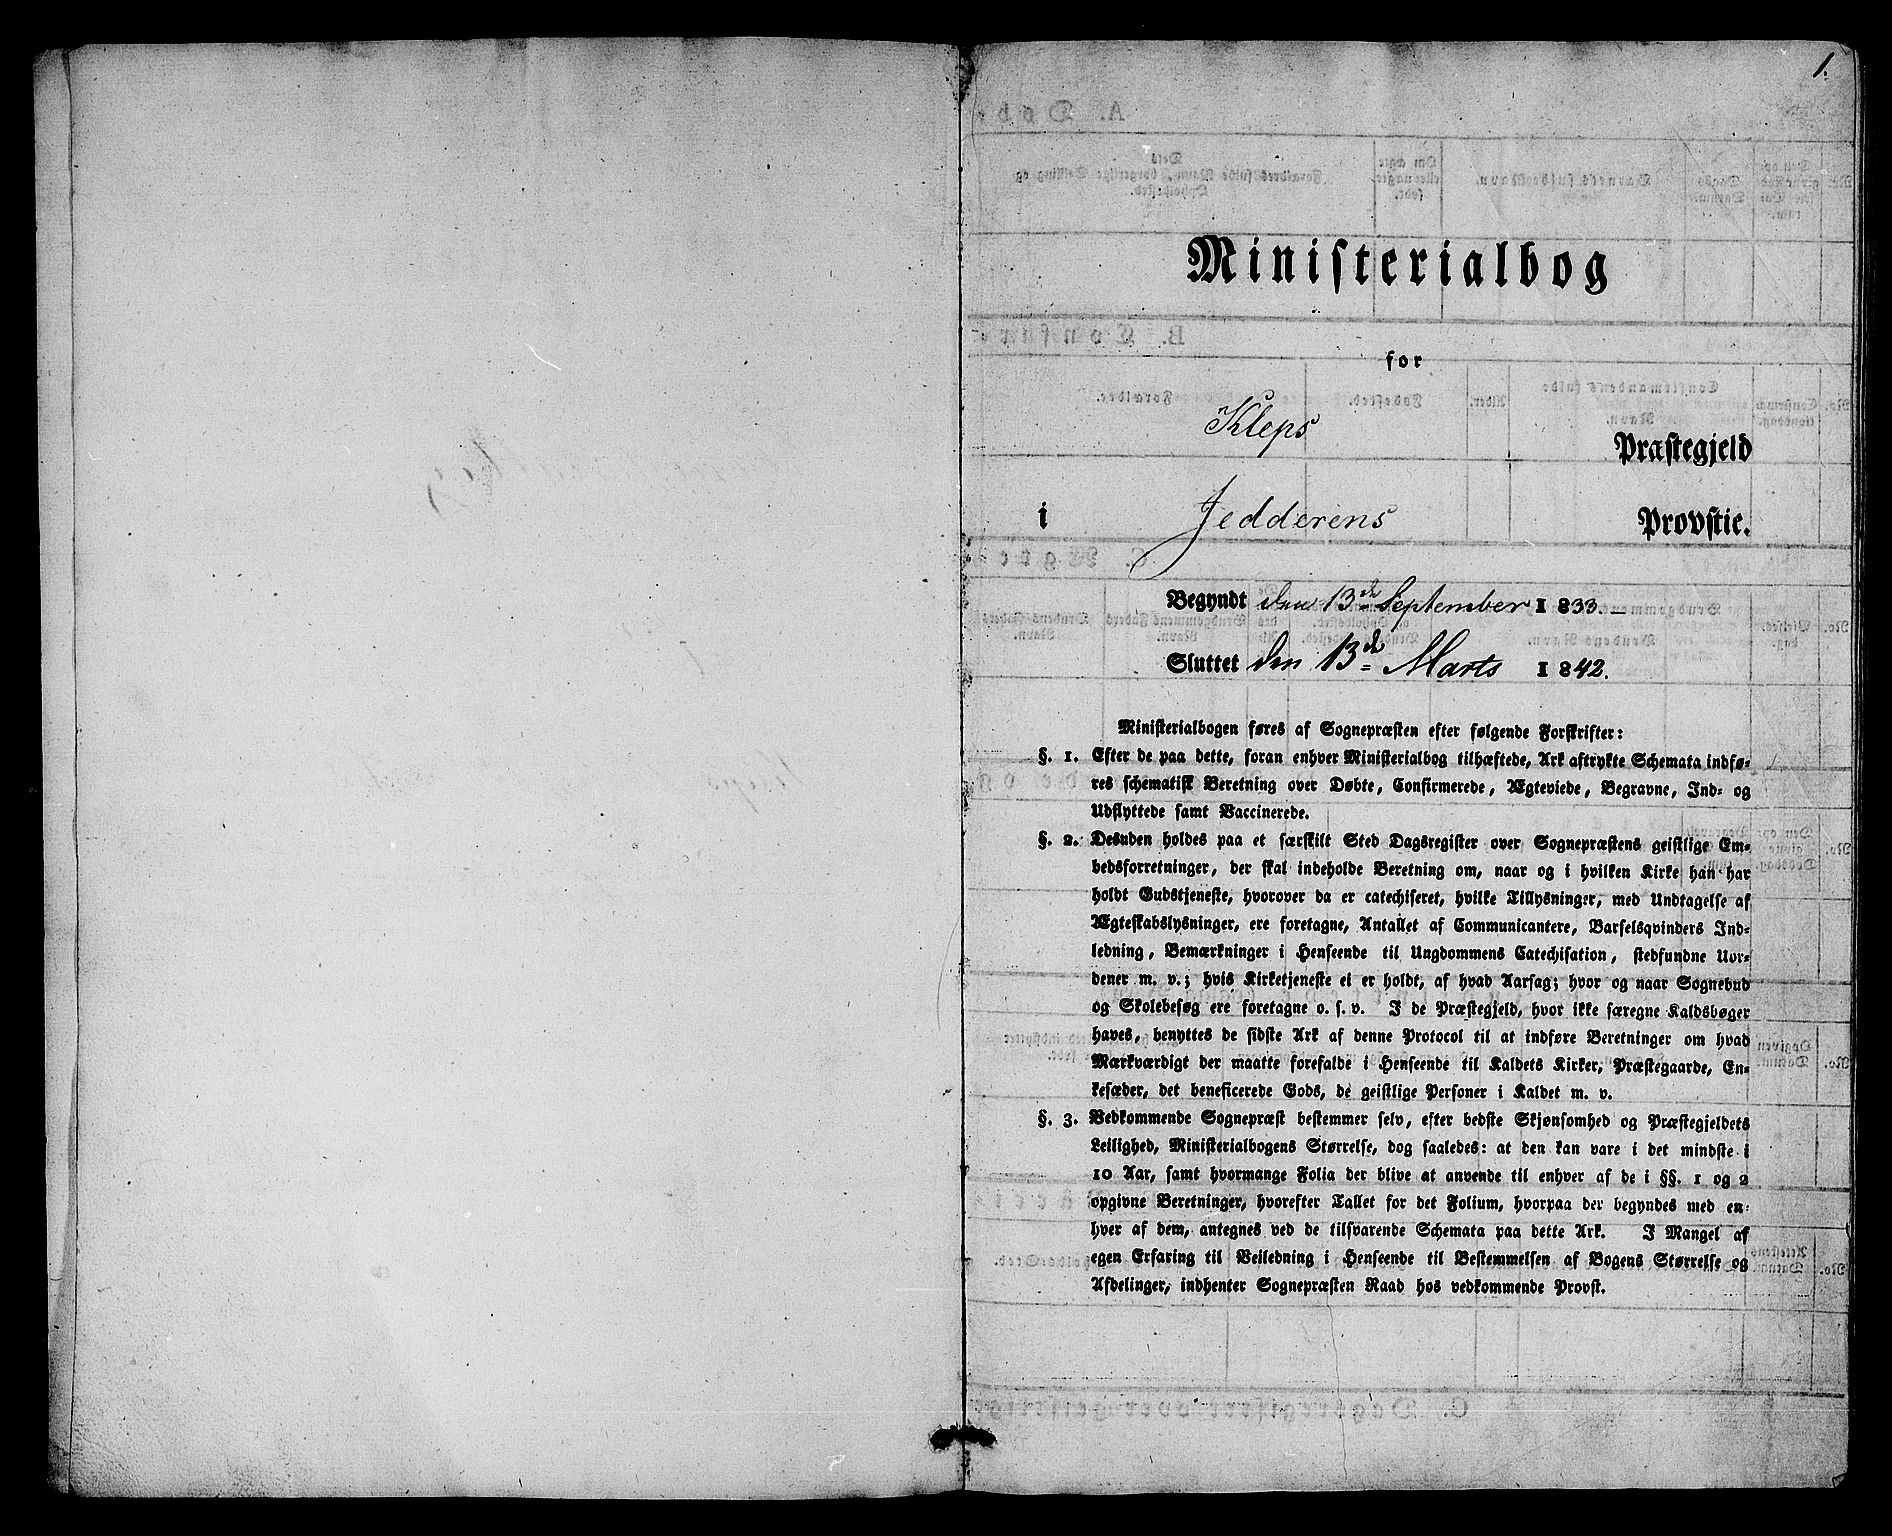 1.
Ministerialbog
for
Kleps Præstegjeld
i Jedderens Provstie.
Begyndt den 13de September 1833.–
Sluttet den 13de Marts 1842.
Ministerialbogen føres af Sognepræsten efter følgende Forskrifter:
§. 1. Efter de paa dette, foran enhver Ministerialbog tilhæftede, Ark aftrykte Schemata indfø-
res schematisk Beretning over Døbte, Confirmerede, Ægteviede, Begravne, Ind- og
Udflyttede samt Vaccinerede.
§. 2. Desuden holdes paa et særskilt Sted Dagsregister over Sognepræstens geistlige Em-
bedsforretninger, der skal indeholde Beretning om, naar og i hvilken Kirke han har
holdt Gudstjeneste, hvorover da er catechiseret, hvilke Tillysninger, med Undtagelse af
Ægteskabslysninger, ere foretagne, Antallet af Communicantere, Barselqvinders Ind-
ledning, Bemærkninger i Henseende til Ungdommens Catechisation, stedfundne Uor-
dener m. v.; hvis Kirketjeneste ei er holdt, af hvad Aarsag; hvor og naar Sognebud
og Skolebesøg ere foretagne o. s. v. I de Præstegjeld, hvor ikke særegne Kaldsbøger
haves, benyttes de sidste Ark af denne Protocol til at indføre Beretninger om hvad
Mærkværdigt der maatte forefalde i Henseende til Kaldets Kirker, Præstegaarde, En-
kesæder, det beneficerede Gods, de geistlige Personer i Kaldet m. v.
§. 3. Vedkommende Sognepræst bestemmer selv, efter bedste Skjønsomhed og Præstegjeldets
Leilighed, Ministerialbogens Størrelse, dog saaledes: at den kan vare i det mindste i
10 Aar, samt hvormange Folia der blive at anvende til enhver af de i §§. 1 og 2
opgivne Beretninger, hvorefter Tallet for det Folium, hvorpaa der begyndes med en-
hver af dem, antegnes ved de tilsvarende Schemata paa dette Ark. I Mangel af
egen Erfaring til Veiledning i Henseende til Bestemmelsen af Bogens Størrelse og
Afdelinger, indhenter Sognepræsten Raad hos vedkommende Provst.